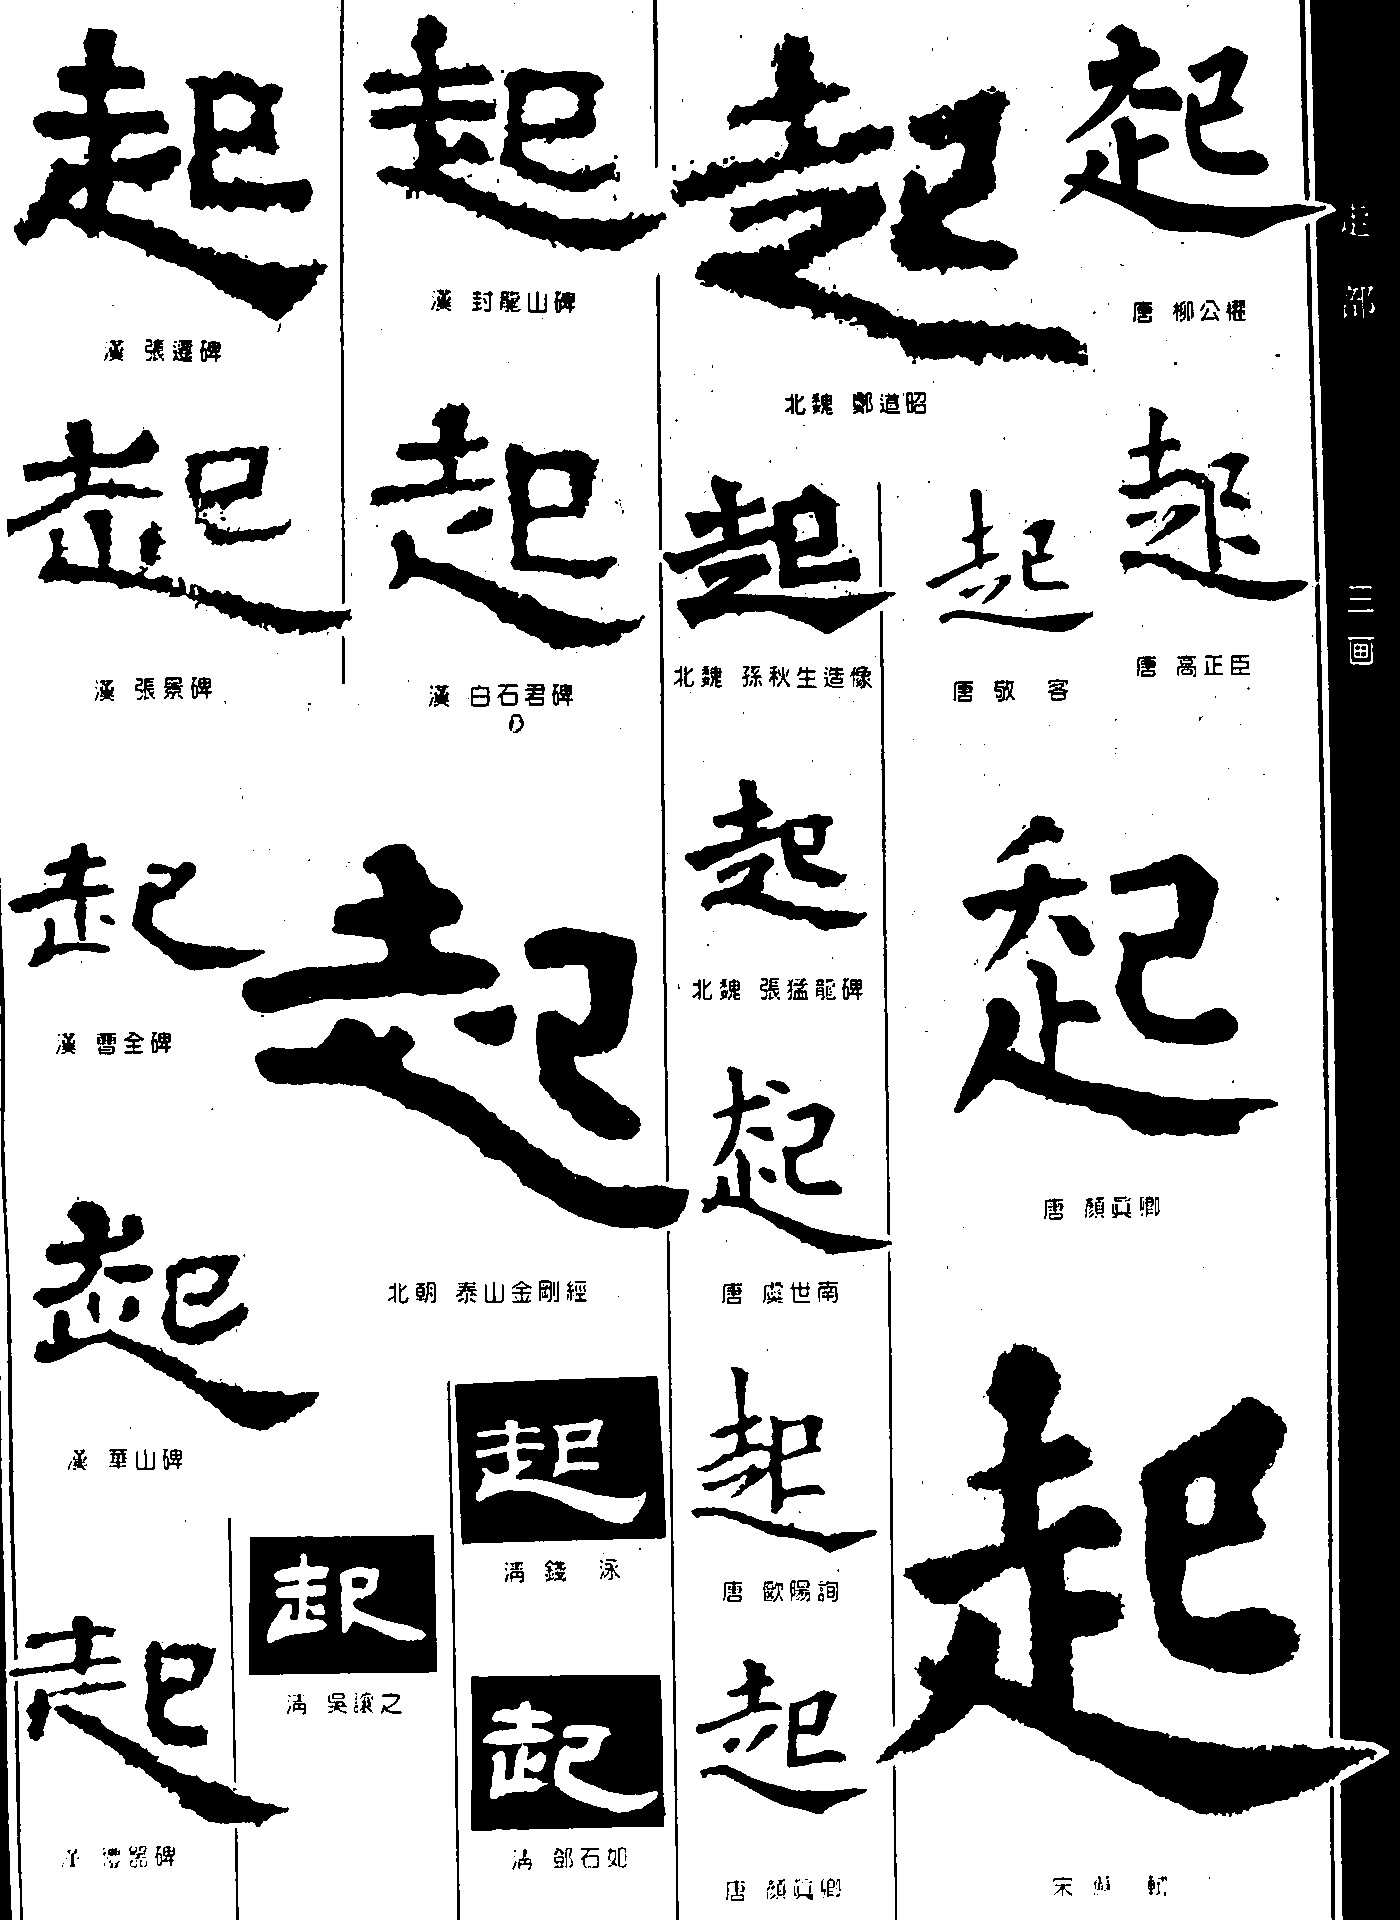 走部
三画
起
唐 柳公權
起
唐 高正臣
起
唐 敬客
起
唐 顏眞卿
起
宋 蘇軾
起
北魏 鄭道昭
起
北魏 孫秋生造像
起
北魏 張猛龍碑
起
唐 虞世南
起
唐 歐陽詢
起
唐 顏眞卿
起
漢 封龍山碑
起
漢 白石君碑
起
北朝 泰山金剛經
起
清 錢泳
起
清 鄧石如
起
清 吳讓之
起
漢 張遷碑
起
漢 張景碑
起
漢 曹全碑
起
漢 華山碑
起
漢 禮器碑